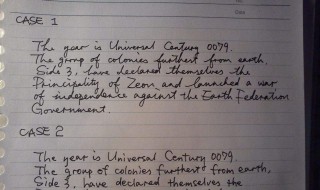 Date
CASE 1
The year is Universal Century 0079.
The group of colonies furthest from earth,
Side 3, have declared themselves the
Principality of Zeon, and launched a war
of independence against the Earth Federation
Government.
CASE 2
The year is Universal Century 0079.
The group of colonies furthest from earth,
Side 3, have declared themselves the